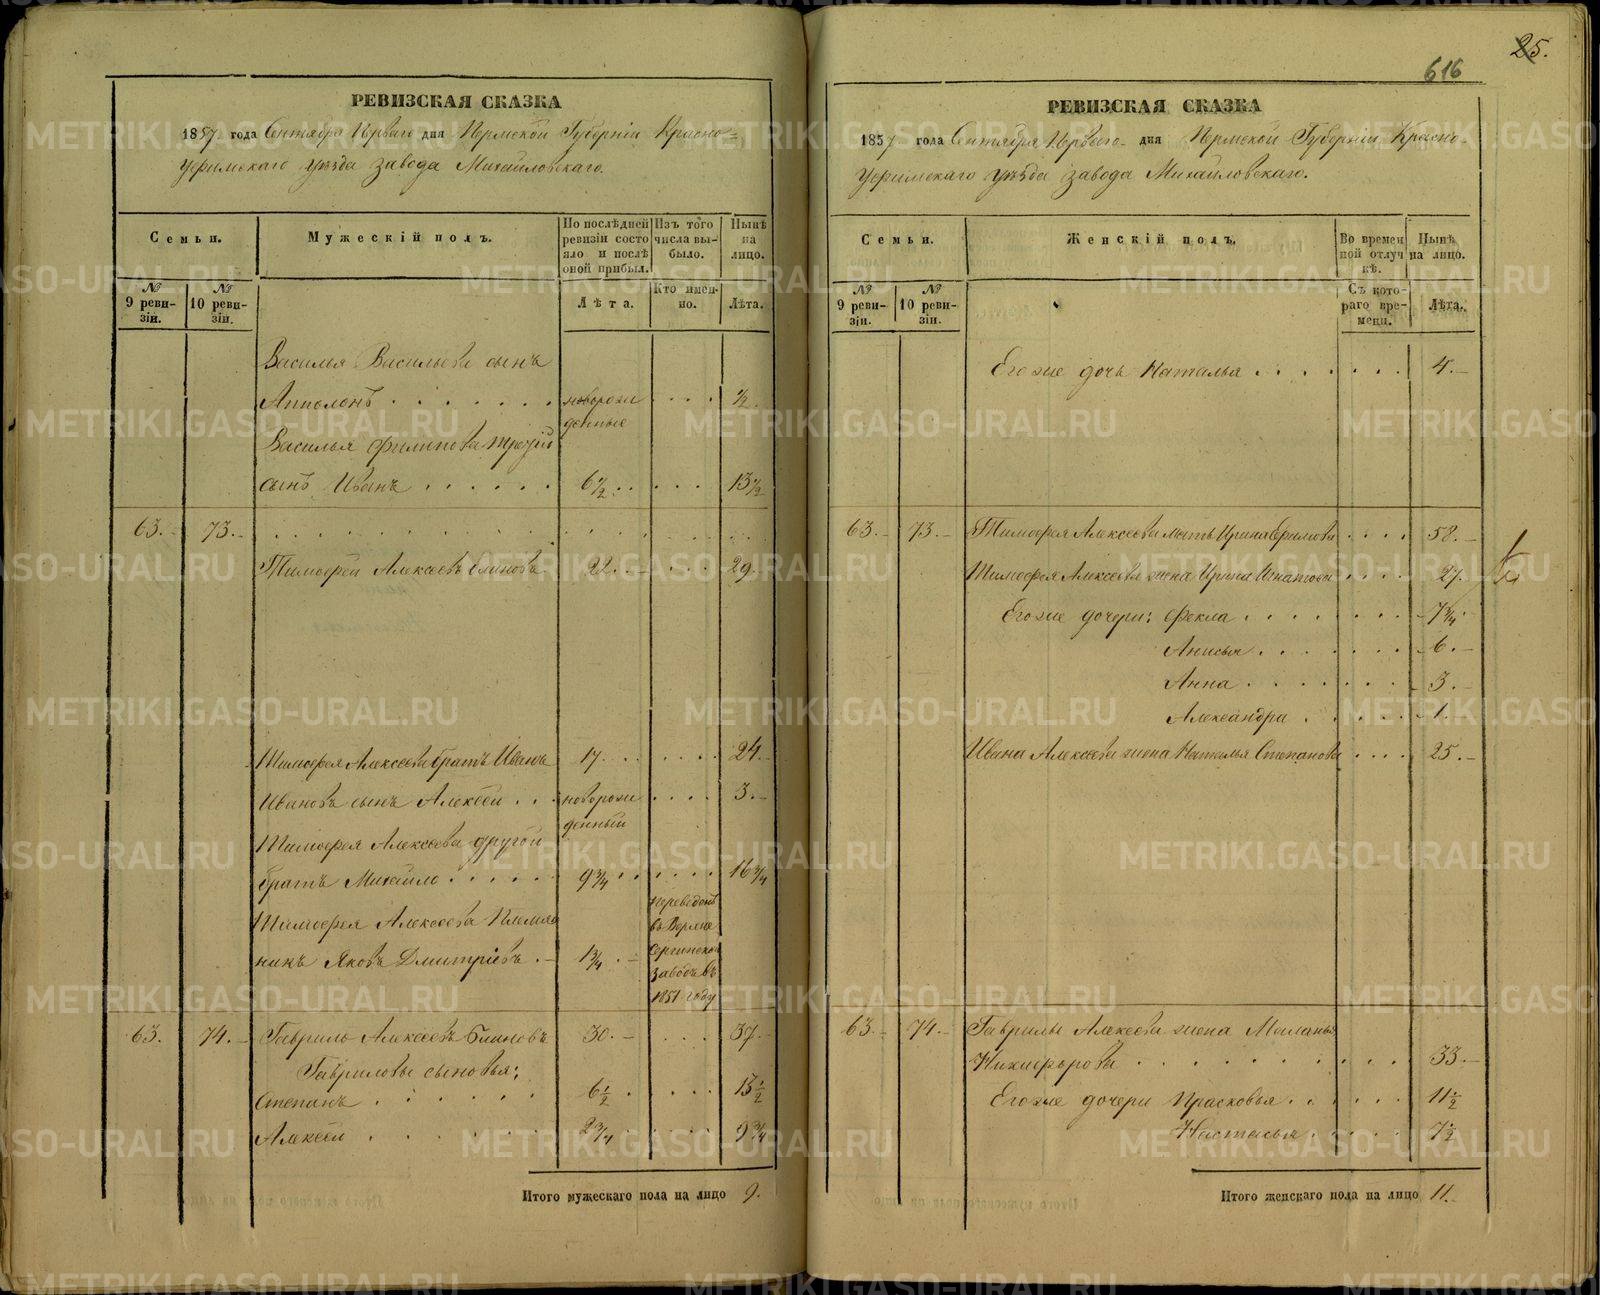 25.
616
РЕВИЗСКАЯ СКАЗКА
1857 года Сентября Перваго дня Пермской Губерніи Красно-
уфимскаго уѣзда завода Михайловскаго.
Семьи.
Мужескій полъ.
По послѣдней ревизіи состо яло и послѣ оной прибыл.
Изъ того числа вы- было.
Нынѣ на лицо.
№ 9 реви- зіи.
№ 10 реви- зіи.
Лѣта.
Кто имен- но.
Лѣта.
Василья Васильева сынъ
Апполонъ . . . . . . . новорожденные . . . . ½
Василья Филипова третій
сынъ Иванъ . . . . . . 6½ . . . . . 13½
63. 73.
Тимофей Алексѣевъ Блиновъ 22 . . . . . 29
Тимофея Алексѣева братъ Иванъ 17. . . . . . 24.
Ивановъ сынъ Алексѣй . . . новорожденный . . . . 3.
Тимофея Алексѣева другой
братъ Михайло . . . . . . 9¾ . . . . . . 16¾
Тимофея Алексѣева племян
никъ Яковъ Дмитріевъ . 1¾ . переведенъ
въ Верхне
Сергинской
заводъ въ
1851 году
63. 74. Гаврило Алексѣевъ Блиновъ 30. . . . 37.
Гавриловы сыновья:
Степанъ . . . . . . 6½ . . . . . 13½
Алексѣй . . . . . . 2¾ . . . . . 9¾
Итого мужескаго пола на лицо 9.
РЕВИЗСКАЯ СКАЗКА
1857 года Сентября Перваго дня Пермской Губерніи Красно-
уфимскаго уѣзда завода Михайловскаго.
Семьи.
Женскій полъ.
Во времен ной отлуч кѣ.
Нынѣ на лицо.
№ 9 реви- зіи.
№ 10 реви- зіи.
Съ кото- раго вре- мени.
Лѣта.
Его же дочь Наталья . . . . . . . 4.
63. 73. Тимофея Алексѣева мать Ирина Ефимова . . . . 58.
Тимофея Алексѣева жена Ирина Игнатова . . . . 27.
Его же дочери: Фекла . . . . . . . 7¾
Анисья . . . . . . 6.
Анна . . . . . . . 3.
Александра . . . . . 1.
Ивана Алексѣева жена Наталья Степанова . . . . 25.
63. 74. Гаврилы Алексѣева жена Маланья
Никифорова . . . . . . . . . . 33.
Его же дочери Прасковья . . . . . . 11½
Настасья . . . . . 7½
Итого женскаго пола на лицо 11.
METRIKI.GASO-URAL.RU